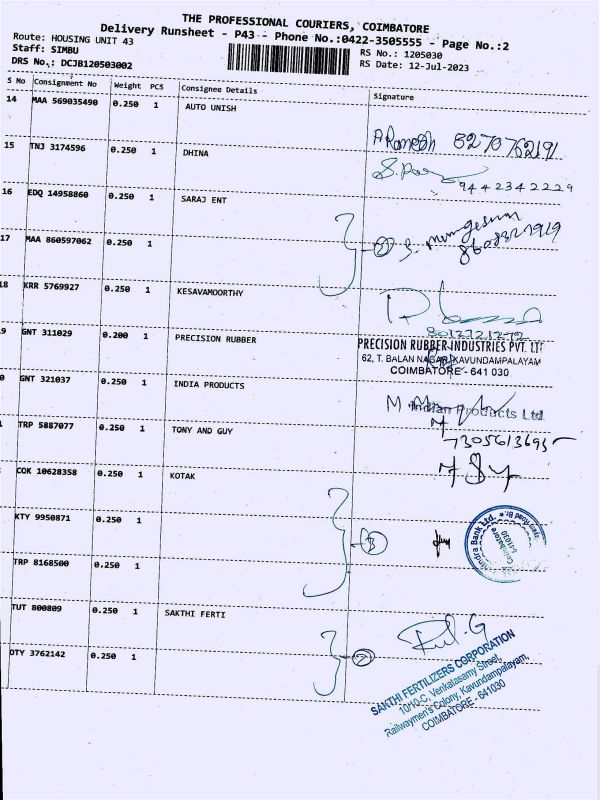 THE PROFESSIONAL COURIERS, COIMBATORE
Delivery Runsheet - P43 - Phone No.:0422-3505555 - Page No.:2
Route: HOUSING UNIT 43
Staff: SIMBU
DRS No.: DCJB120503002
RS No.: 1205030
RS Date: 12-Jul-2023
S No Consignment No Weight PCS Consignee Details Signature
14 MAA 569035490 0.250 1 AUTO UNISH
A Ramesh 8270762191
15 TNJ 3174596 0.250 1 DHINA
9442342229
16 EDQ 14958860 0.250 1 SARAJ ENT
17 MAA 860597062 0.250 1
2 S. Murugesan
8608321919
18 KRR 5769927 0.250 1 KESAVAMOORTHY
8012721272
9 GNT 311029 0.200 1 PRECISION RUBBER
PRECISION RUBBER INDUSTRIES PVT. LT
62, T. BALAN NAGAR, KAVUNDAMPALAYAM
COIMBATORE - 641 030
0 GNT 321037 0.250 1 INDIA PRODUCTS
Indian Products Ltd
TRP 5887077 0.250 1 TONY AND GUY
7305613695
COK 10628358 0.250 1 KOTAK
KTY 9950871 0.250 1
3
TRP 8168500 0.250 1
TUT 800809 0.250 1 SAKTHI FERTI
OTY 3762142 0.250 1
2
SAKTHI FERTILIZERS CORPORATION
10/10-C, Venkatasamy Street,
Railwaymen's Colony, Kavundampalayam,
COIMBATORE - 641030